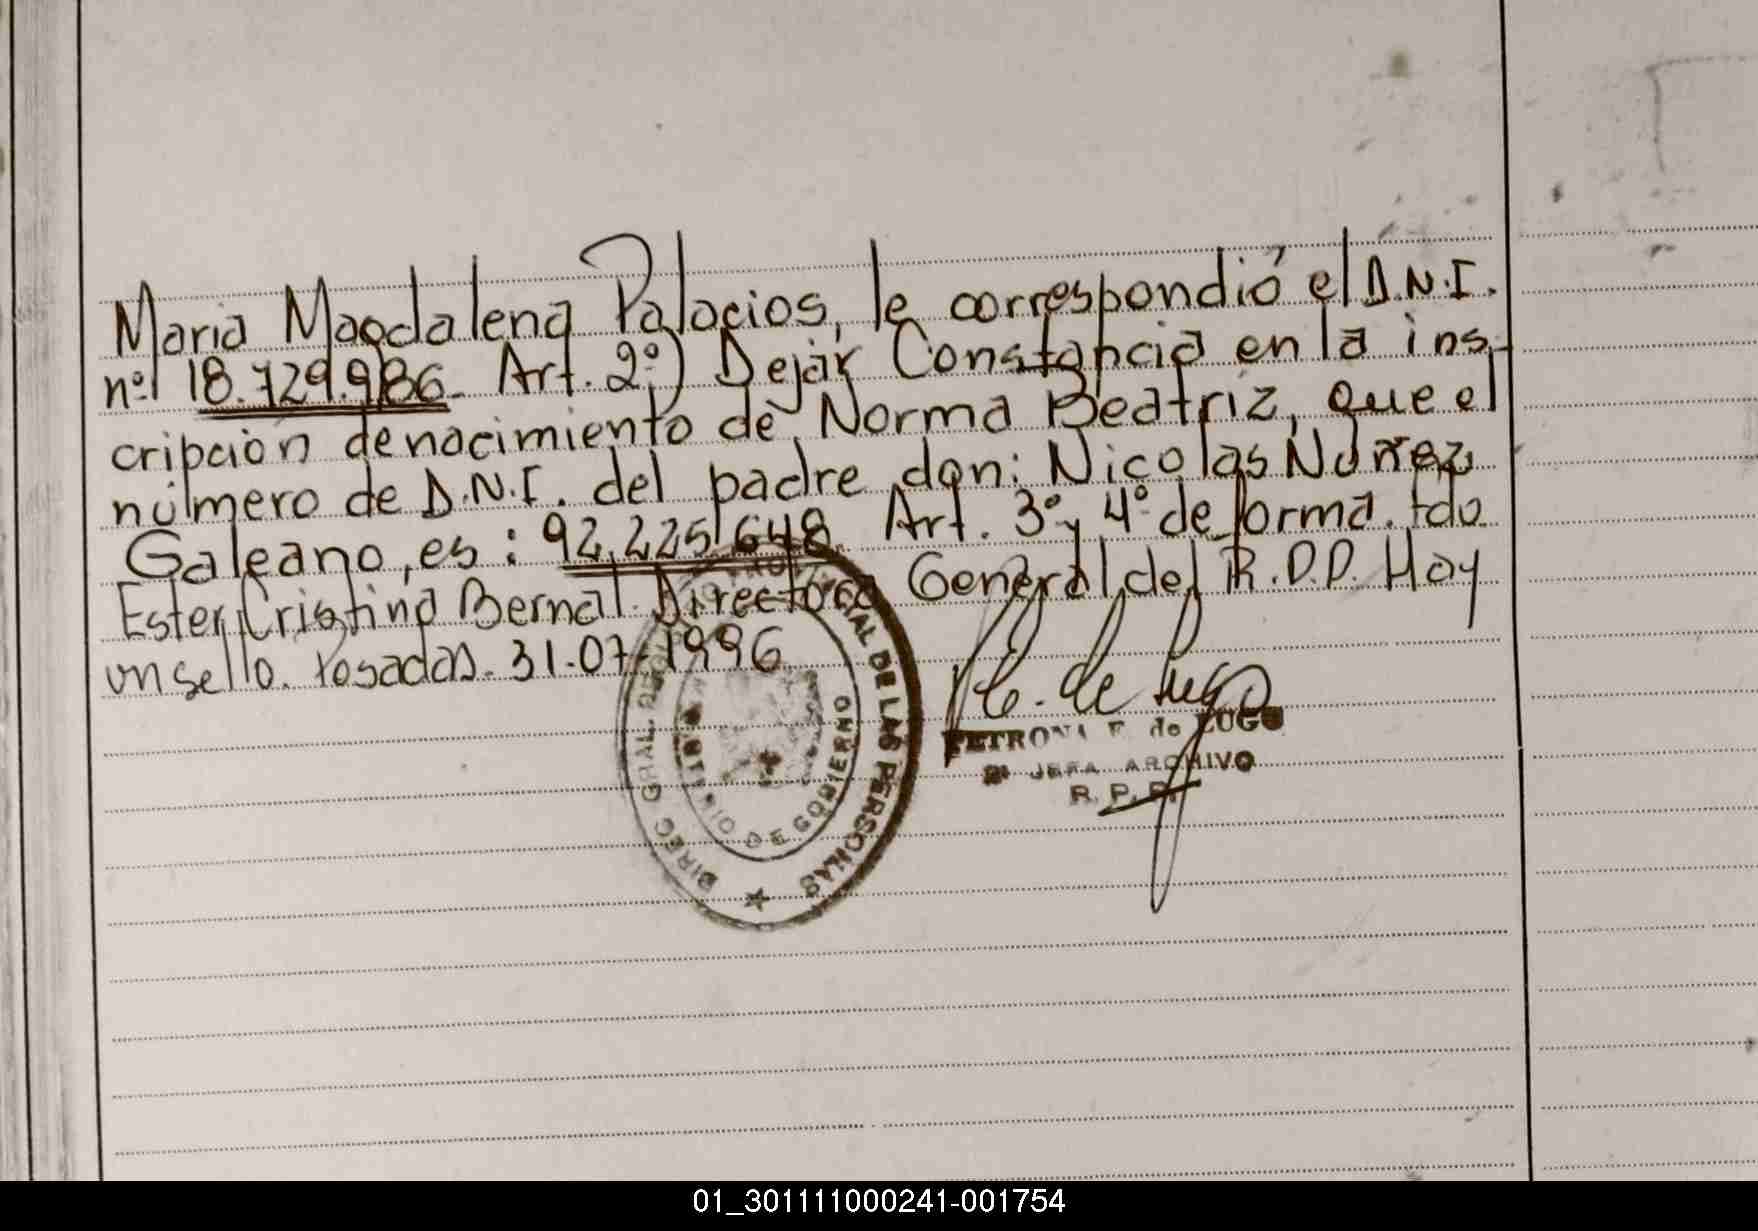 Maria Magdalena Palacios, le correspondió el D.N.I.
nº 18.729.986. Art. 2º) Dejar Constancia en la ins-
cripción de nacimiento de Norma Beatriz, que el
número de D.N.I. del padre don: Nicolas Nuñez
Galeano, es: 92.225.648. Art. 3º y 4º de forma. fdo
Ester Cristina Bernal. Directora General del R.P.P. Hay
un sello. Posadas. 31-07-1996
DIREC. GRAL. DE PROVINCIAL DE LAS PERSONAS
MINISTERIO DE GOBIERNO
P. E. de Lugo
PETRONA E. de LUGO
JEFA ARCHIVO
R. P. P.
01_301111000241-001754